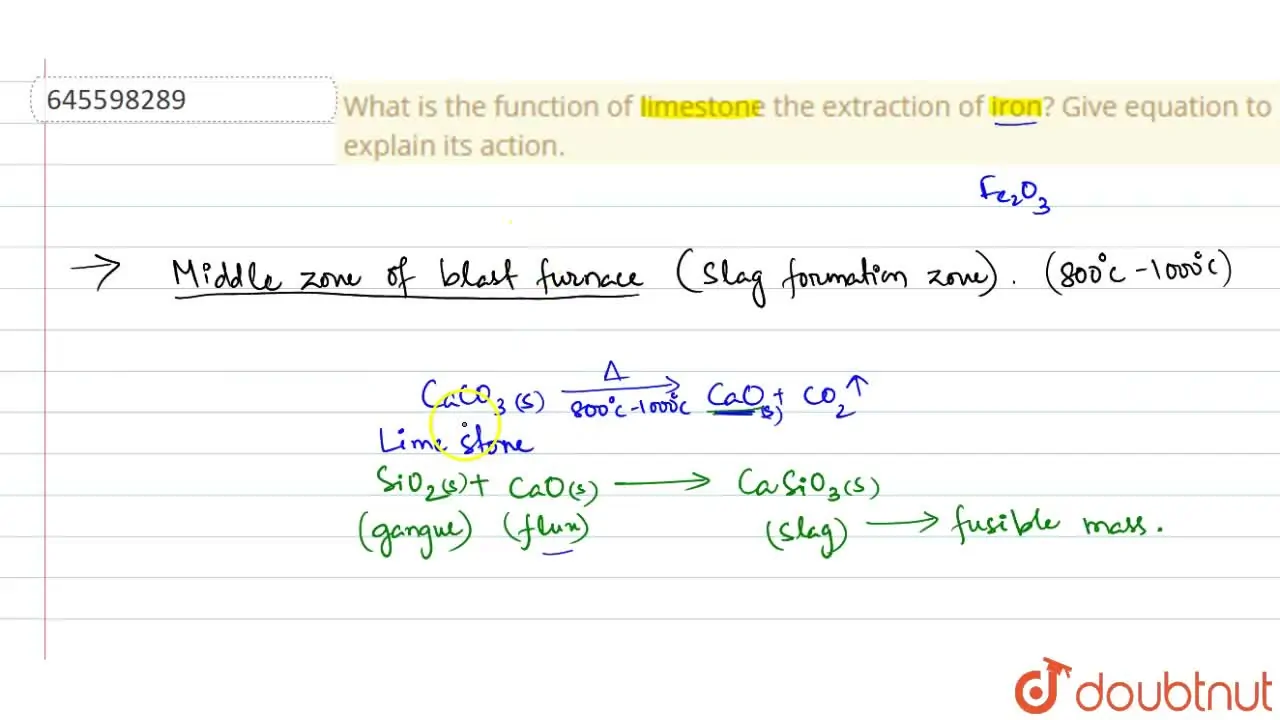 645598289
What is the function of limestone the extraction of iron? Give equation to
explain its action.
Fe₂O₃
→ Middle zone of blast furnace (Slag formation zone). (800°C - 1000°C)
Δ
CaCO₃(s) → CaO(s) + CO₂↑
800°C-1000°C
Lime stone
SiO₂(s) + CaO(s) → CaSiO₃(s)
(gangue) (flux) (slag) → fusible mass.
doubtnut